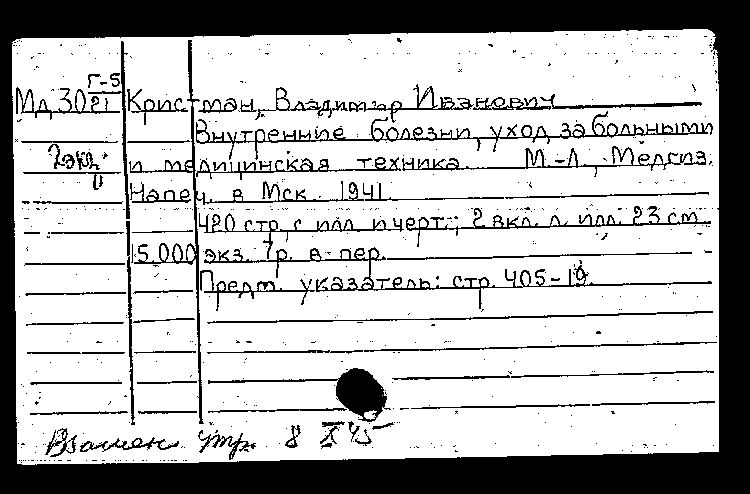 Г-5
Мд 30 81 Кристман, Владимир Иванович
Внутренние болезни, уход за больными
2 экз. и медицинская техника. М.-Л., Медгиз.
Напеч. в Мск. 1941.
420 стр. с илл. и черт.; 2 вкл. л. илл. 23 см.
15.000 экз. 7р. в пер.
Предм. указатель: стр. 405-19.
Взамен утр. 8 X 45